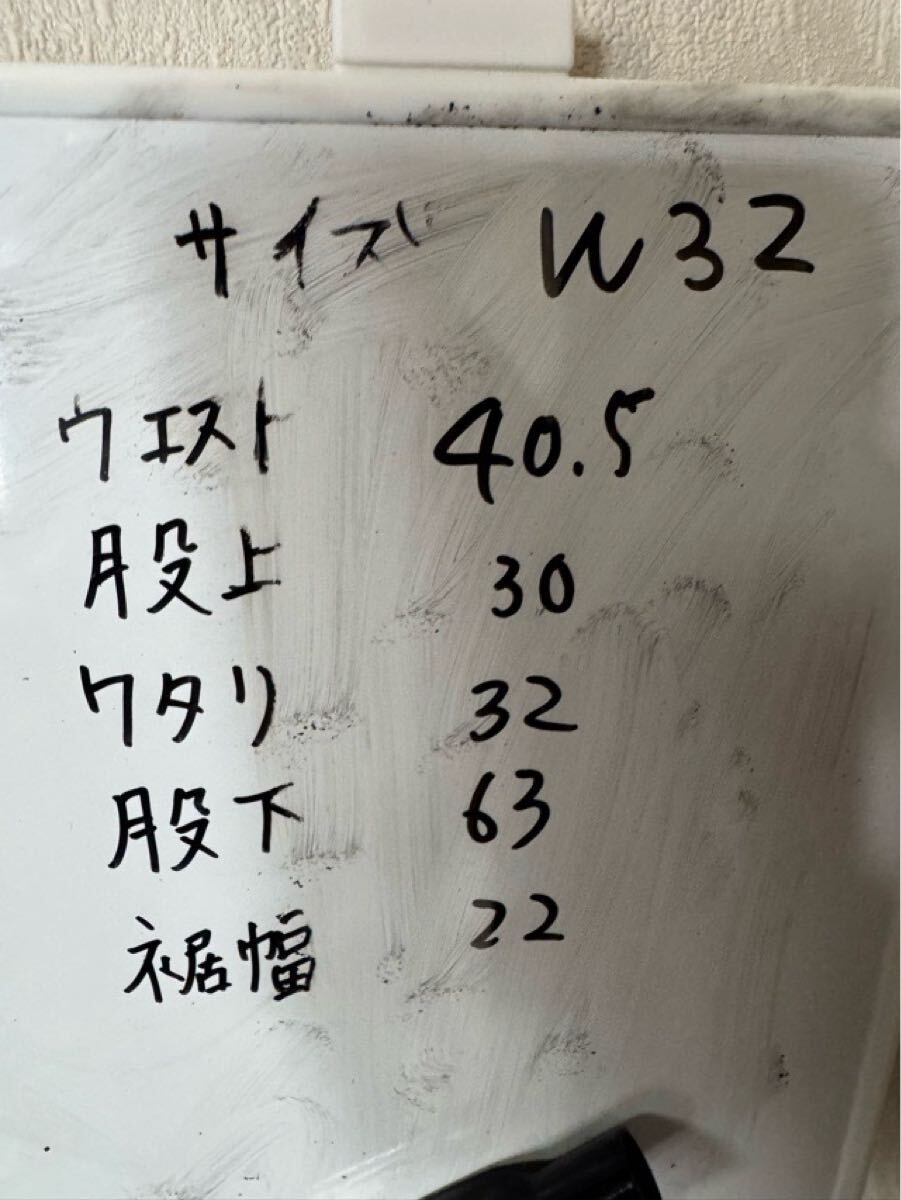 サイズ W32
ウエスト 40.5
股上 30
ワタリ 32
股下 63
裾幅 22